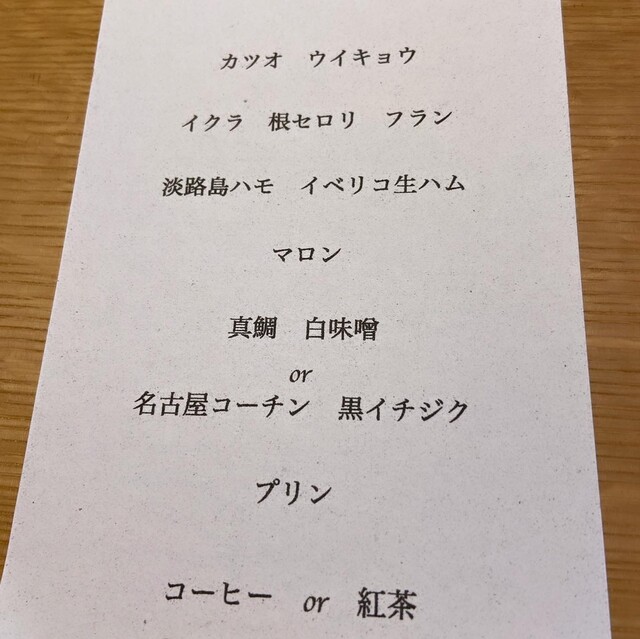 カツオ　ウイキョウ
イクラ　根セロリ　フラン
淡路島ハモ　イベリコ生ハム
マロン
真鯛　白味噌
or
名古屋コーチン　黒イチジク
プリン
コーヒー　or　紅茶